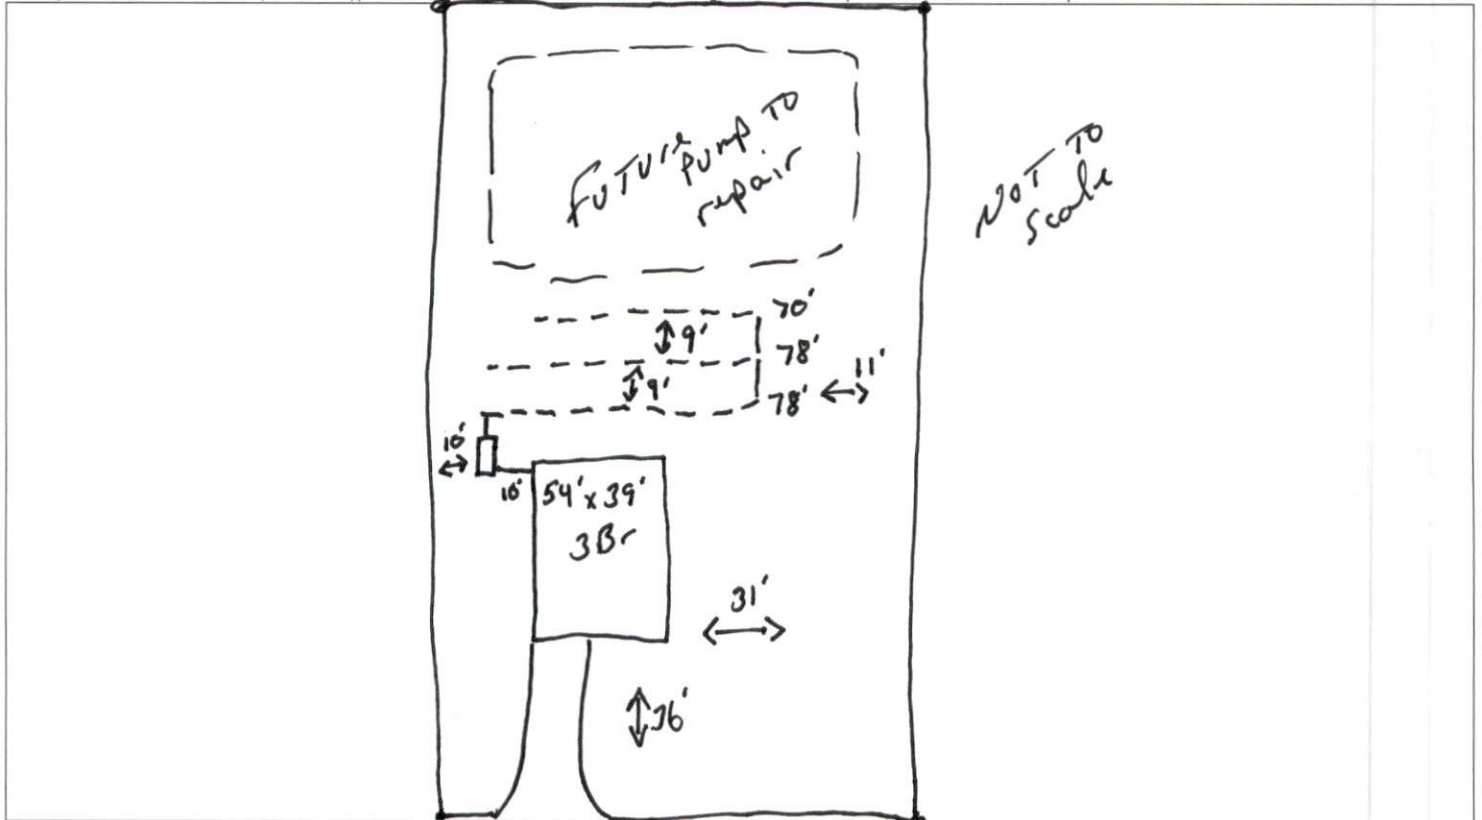 FUTURE PUMP TO
repair
NOT TO
Scale
70'
9'
78'
9'
78'
11'
10'
10'
54' x 39'
3Br
31'
36'